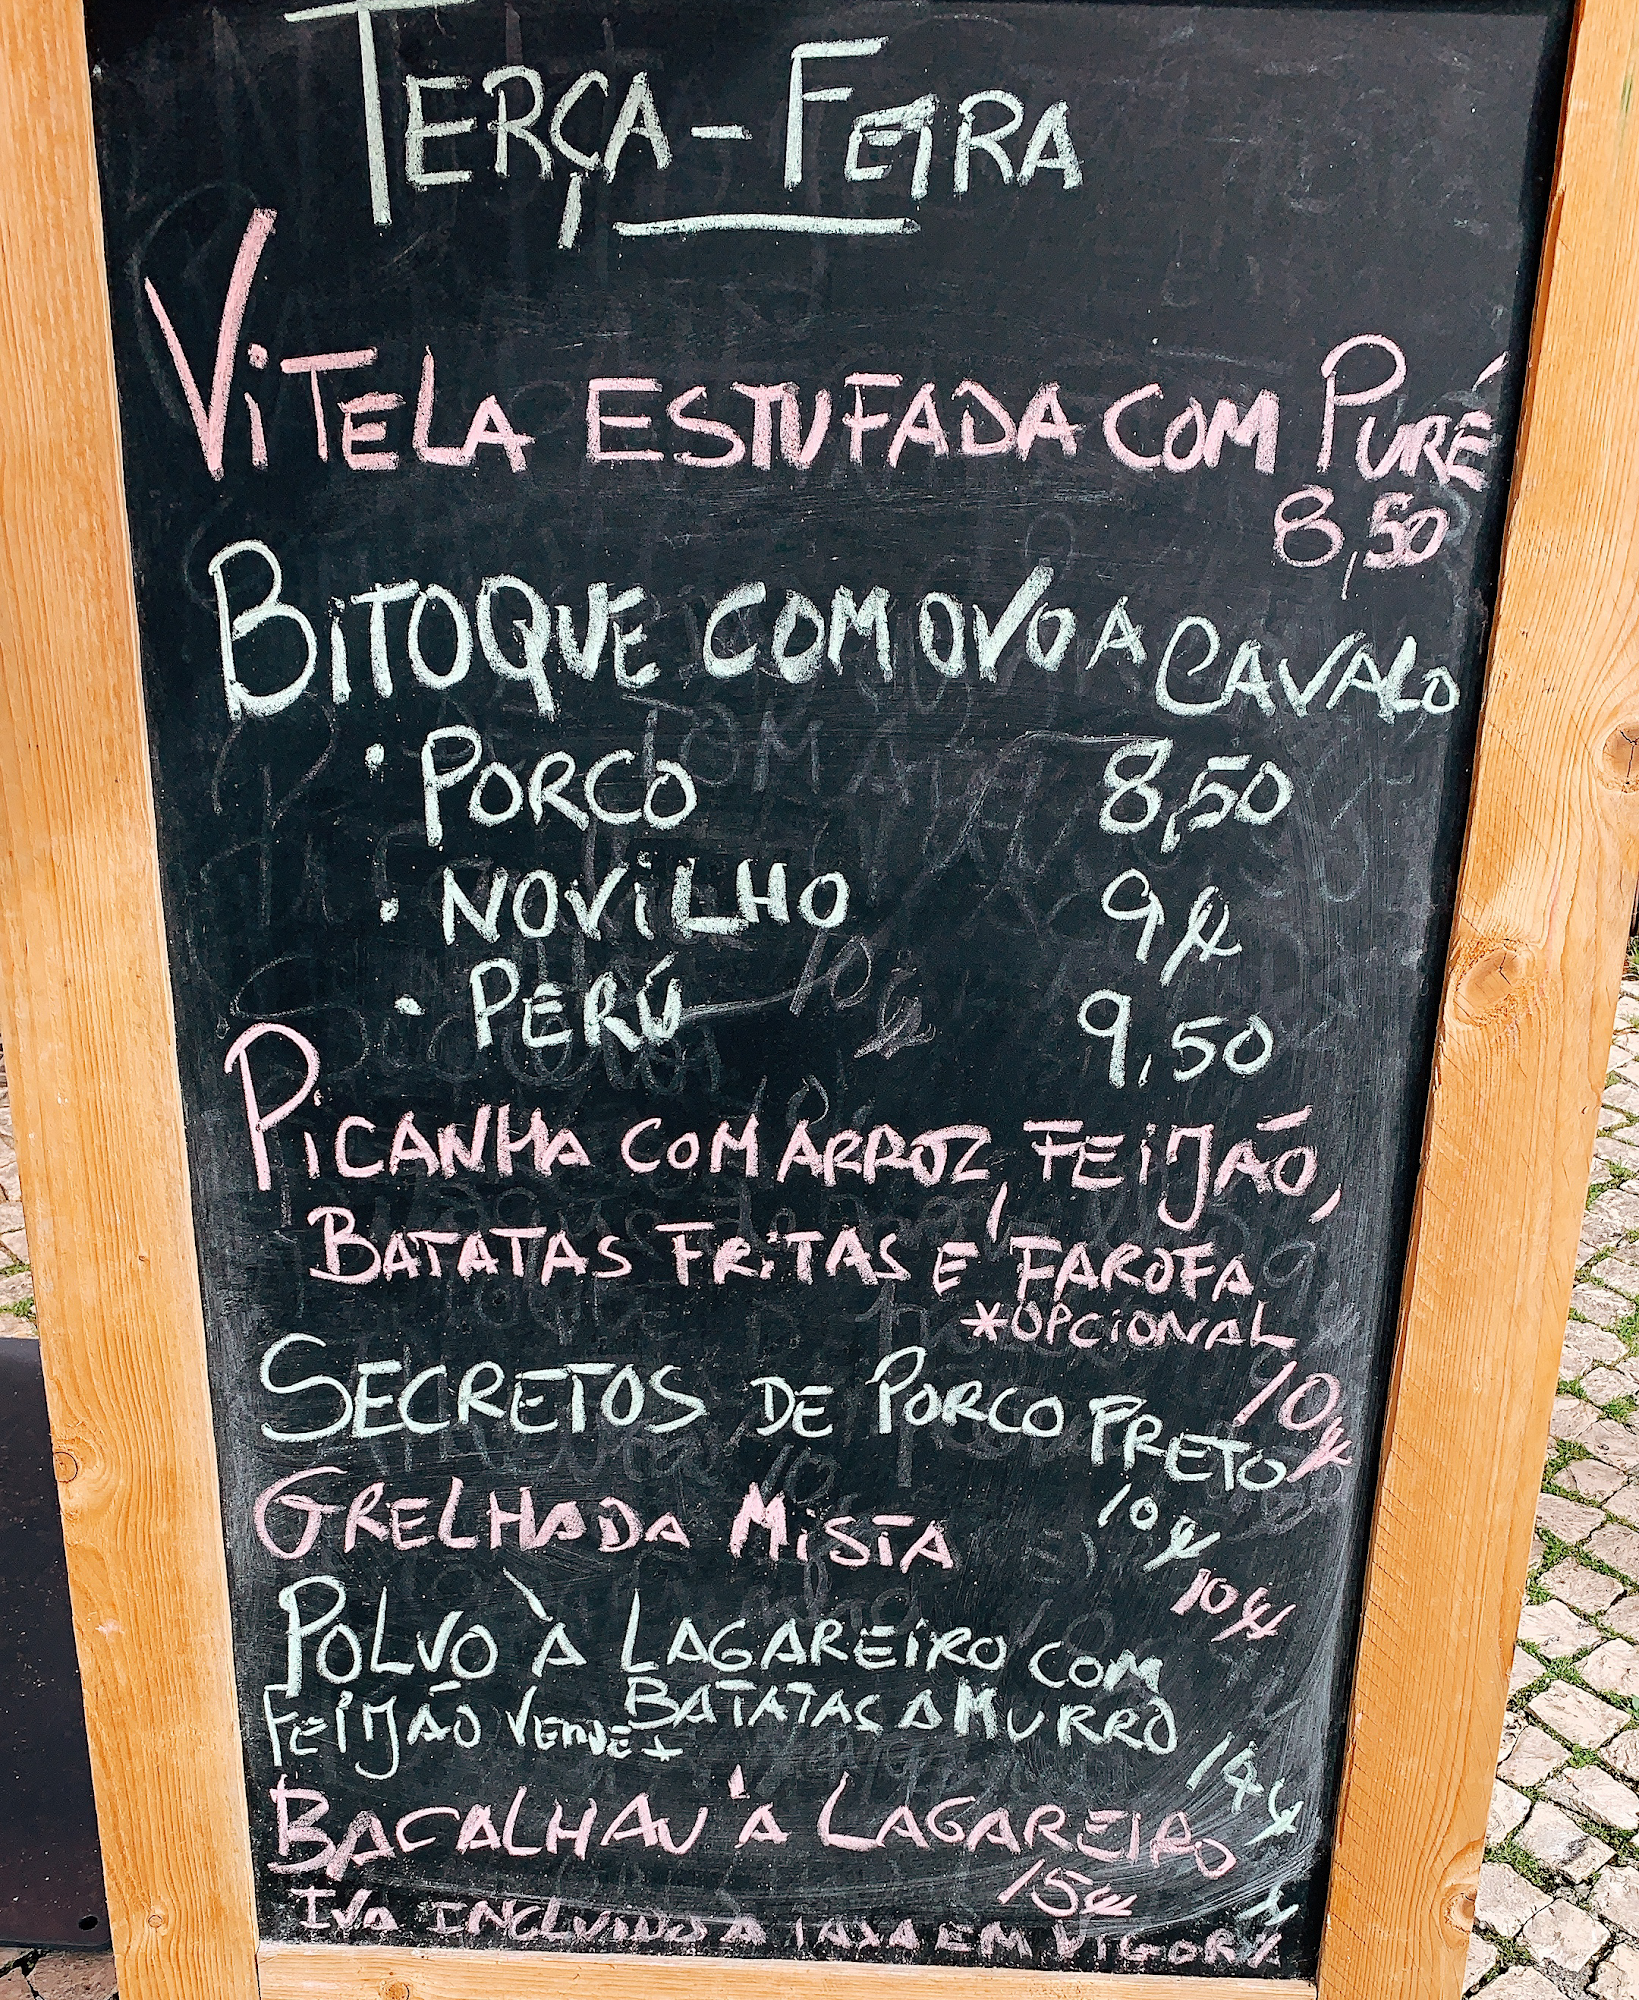 TERÇA-FEIRA
VITELA ESTUFADA COM PURÉ
8,50
BITOQUE COM OVO A CAVALO
• PORCO 8,50
• NOVILHO 9€
• PERÚ 9,50
PICANHA COM ARROZ, FEIJÃO,
BATATAS FRITAS E FAROFA
*OPCIONAL
10€
SECRETOS DE PORCO PRETO
10€
GRELHADA MISTA
10€
POLVO À LAGAREIRO COM
FEIJÃO VERDE + BATATAS A MURRO
14€
BACALHAU À LAGAREIRO
15€
IVA INCLUIDO A TAXA EM VIGOR